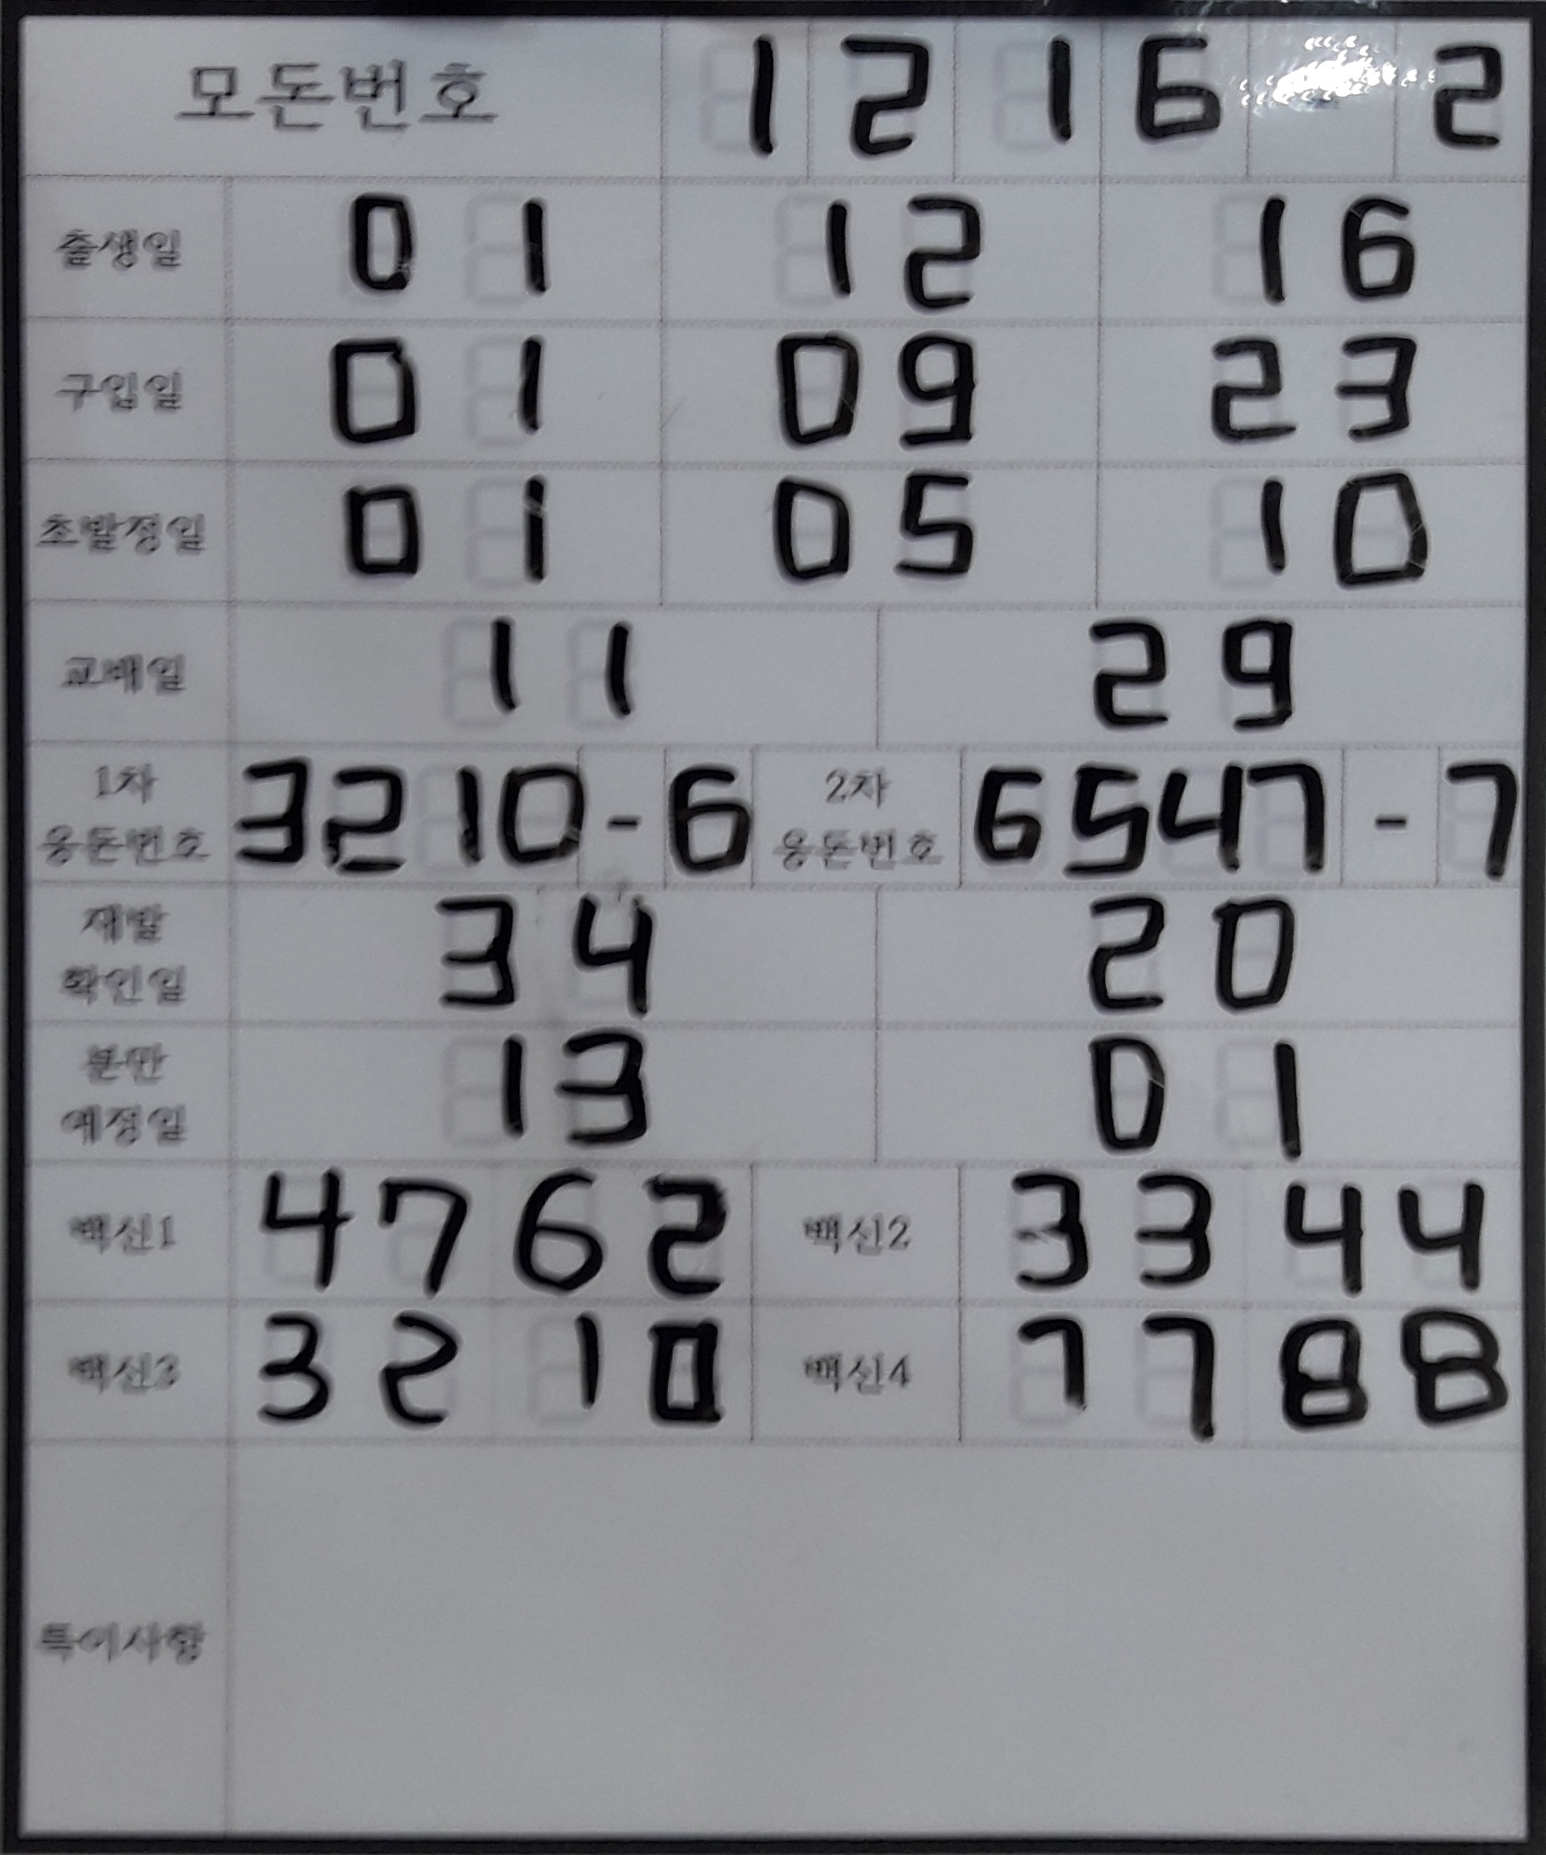 모돈번호 1 2 1 6 2
출생일 0 1 1 2 1 6
구입일 0 1 0 9 2 3
초발정일 0 1 0 5 1 0
교배일 1 1 2 9
1차 웅돈번호 3 2 1 0 - 6 2차 웅돈번호 6 5 4 7 - 7
재발 확인일 3 4 2 0
분만 예정일 1 3 0 1
백신1 4 7 6 2 백신2 3 3 4 4
백신3 3 2 1 0 백신4 7 7 8 8
특이사항